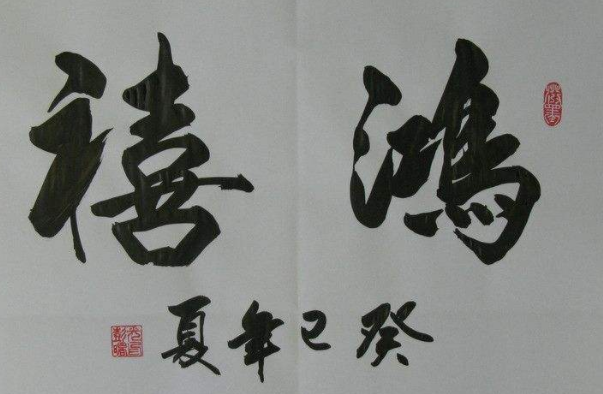 鸿禧
癸巳年夏